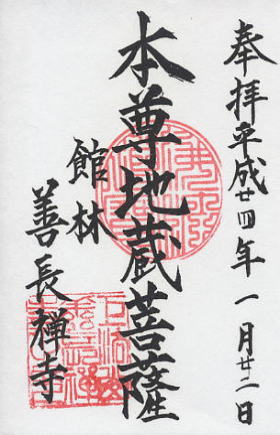 奉拝平成廿四年一月廿二日
本尊地蔵菩薩
館林
善長禅寺